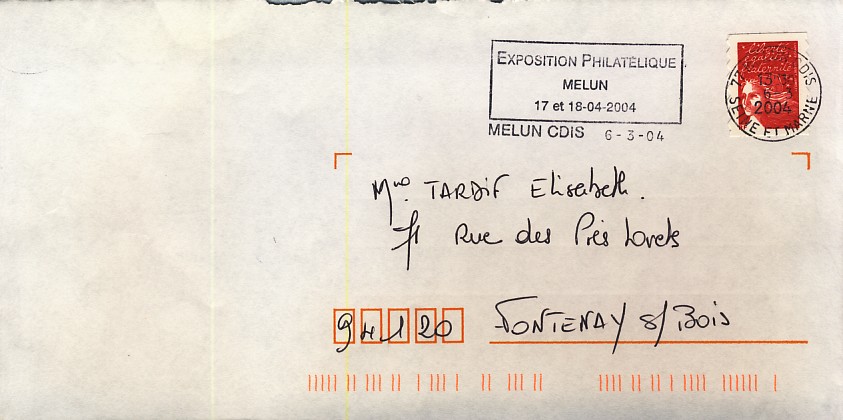 EXPOSITION PHILATÉLIQUE
MELUN
17 et 18-04-2004
MELUN CDIS 6-3-04
Liberté
égalité
fraternité
77 CDIS
6-3
2004
SEINE ET MARNE
Mme TARDIF Elisabeth.
71 Rue des Prés Lorets
94120 FONTENAY s/Bois